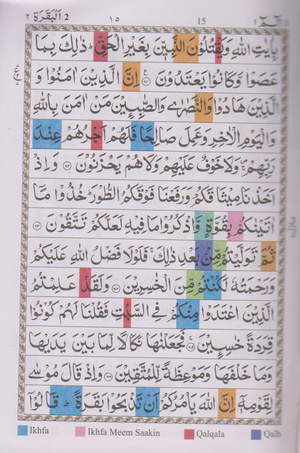 البقرة ٢ ١٥ 15 الٓمّٓ ١
بِاٰيٰتِ اللّٰهِ وَيَقْتُلُوْنَ النَّبِيّٖنَ بِغَيْرِ الْحَقِّ ؕ ذٰلِكَ بِمَا
عَصَوْا وَّكَانُوْا يَعْتَدُوْنَ ﴿۶۱﴾ اِنَّ الَّذِيْنَ اٰمَنُوْا وَ
الَّذِيْنَ هَادُوْا وَالنَّصٰرٰى وَالصّٰبِـِٕيْنَ مَنْ اٰمَنَ بِاللّٰهِ
وَالْيَوْمِ الْاٰخِرِ وَعَمِلَ صَالِحًا فَلَهُمْ اَجْرُهُمْ عِنْدَ
رَبِّهِمْ ۚ وَلَا خَوْفٌ عَلَيْهِمْ وَلَا هُمْ يَحْزَنُوْنَ ﴿۶۲﴾ وَاِذْ
اَخَذْنَا مِيْثَاقَكُمْ وَرَفَعْنَا فَوْقَكُمُ الطُّوْرَ ؕ خُذُوْا مَآ
اٰتَيْنٰكُمْ بِقُوَّةٍ وَّاذْكُرُوْا مَا فِيْهِ لَعَلَّكُمْ تَتَّقُوْنَ ﴿۶۳﴾
ثُمَّ تَوَلَّيْتُمْ مِّنْۢ بَعْدِ ذٰلِكَ ۚ فَلَوْلَا فَضْلُ اللّٰهِ عَلَيْكُمْ
وَرَحْمَتُهٗ لَكُنْتُمْ مِّنَ الْخٰسِرِيْنَ ﴿۶۴﴾ وَلَقَدْ عَلِمْتُمُ
الَّذِيْنَ اعْتَدَوْا مِنْكُمْ فِى السَّبْتِ فَقُلْنَا لَهُمْ كُوْنُوْا
قِرَدَةً خٰسِـِٕيْنَ ﴿۶۵﴾ فَجَعَلْنٰهَا نَكَالًا لِّمَا بَيْنَ يَدَيْهَا
وَمَا خَلْفَهَا وَمَوْعِظَةً لِّلْمُتَّقِيْنَ ﴿۶۶﴾ وَاِذْ قَالَ مُوْسٰى
لِقَوْمِهٖٓ اِنَّ اللّٰهَ يَاْمُرُكُمْ اَنْ تَذْبَحُوْا بَقَرَةً ؕ قَالُوْٓا
Ikhfa Ikhfa Meem Saakin Qalqala Qalb